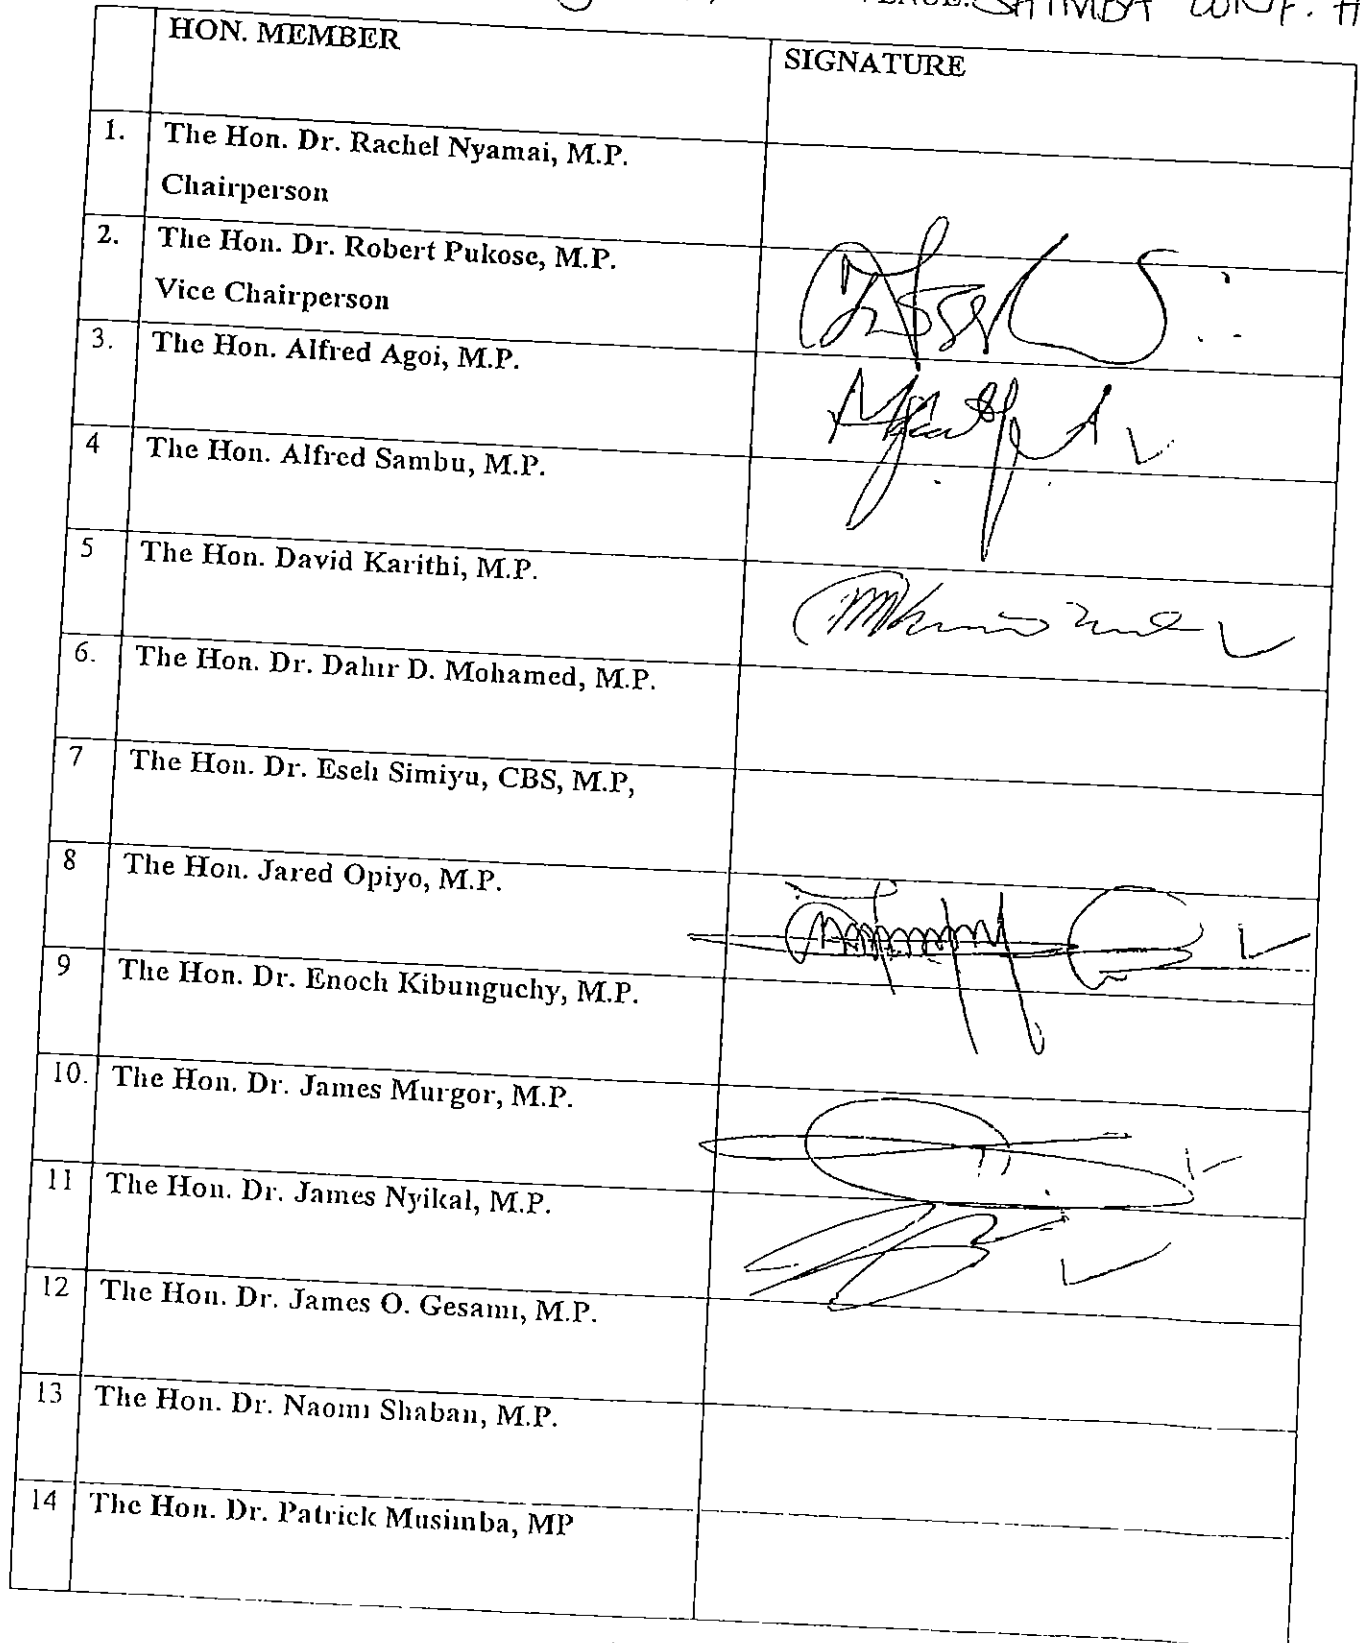 VENUE: SHIMBA CONF. H
HON. MEMBER SIGNATURE
1. The Hon. Dr. Rachel Nyamai, M.P.
Chairperson
2. The Hon. Dr. Robert Pukose, M.P.
Vice Chairperson
3. The Hon. Alfred Agoi, M.P.
4 The Hon. Alfred Sambu, M.P.
5 The Hon. David Karithi, M.P.
6. The Hon. Dr. Dahir D. Mohamed, M.P.
7 The Hon. Dr. Eseli Simiyu, CBS, M.P,
8 The Hon. Jared Opiyo, M.P.
9 The Hon. Dr. Enoch Kibunguchy, M.P.
10. The Hon. Dr. James Murgor, M.P.
11 The Hon. Dr. James Nyikal, M.P.
12 The Hon. Dr. James O. Gesami, M.P.
13 The Hon. Dr. Naomi Shaban, M.P.
14 The Hon. Dr. Patrick Musimba, MP